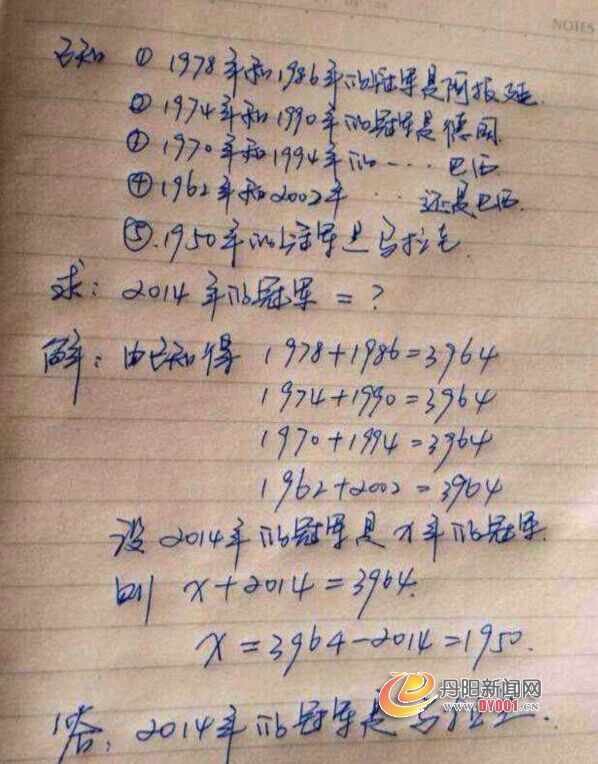 NOTES
已知 ① 1978年和1986年的冠军是阿根廷.
② 1974年和1990年的冠军是德国.
③ 1970年和1994年的····巴西
④ 1962年和2002年··还是巴西.
⑤ 1950年的冠军是乌拉圭.
求: 2014年的冠军=?
解: 由已知得 1978+1986=3964
1974+1990=3964
1970+1994=3964
1962+2002=3964
设2014年的冠军是x年的冠军.
则 x+2014=3964.
x=3964-2014=1950.
丹阳新闻网
WWW.DY001.CN
答: 2014年的冠军是乌拉圭.